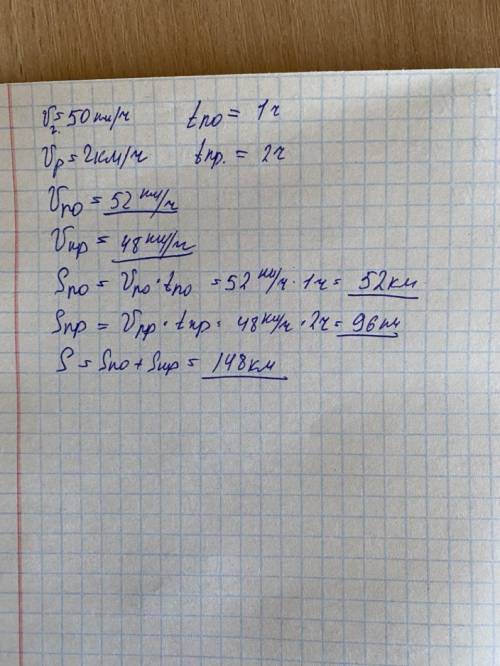 V г. = 50 км/ч tпо = 1ч
Vр = 2км/ч tпр. = 2ч
Vпо = 52 км/ч
Vпр = 48 км/ч
Sпо = Vпо · tпо = 52 км/ч · 1ч = 52км
Sпр = Vпр · tпр = 48 км/ч · 2ч = 96 км
S = Sпо + Sпр = 148км